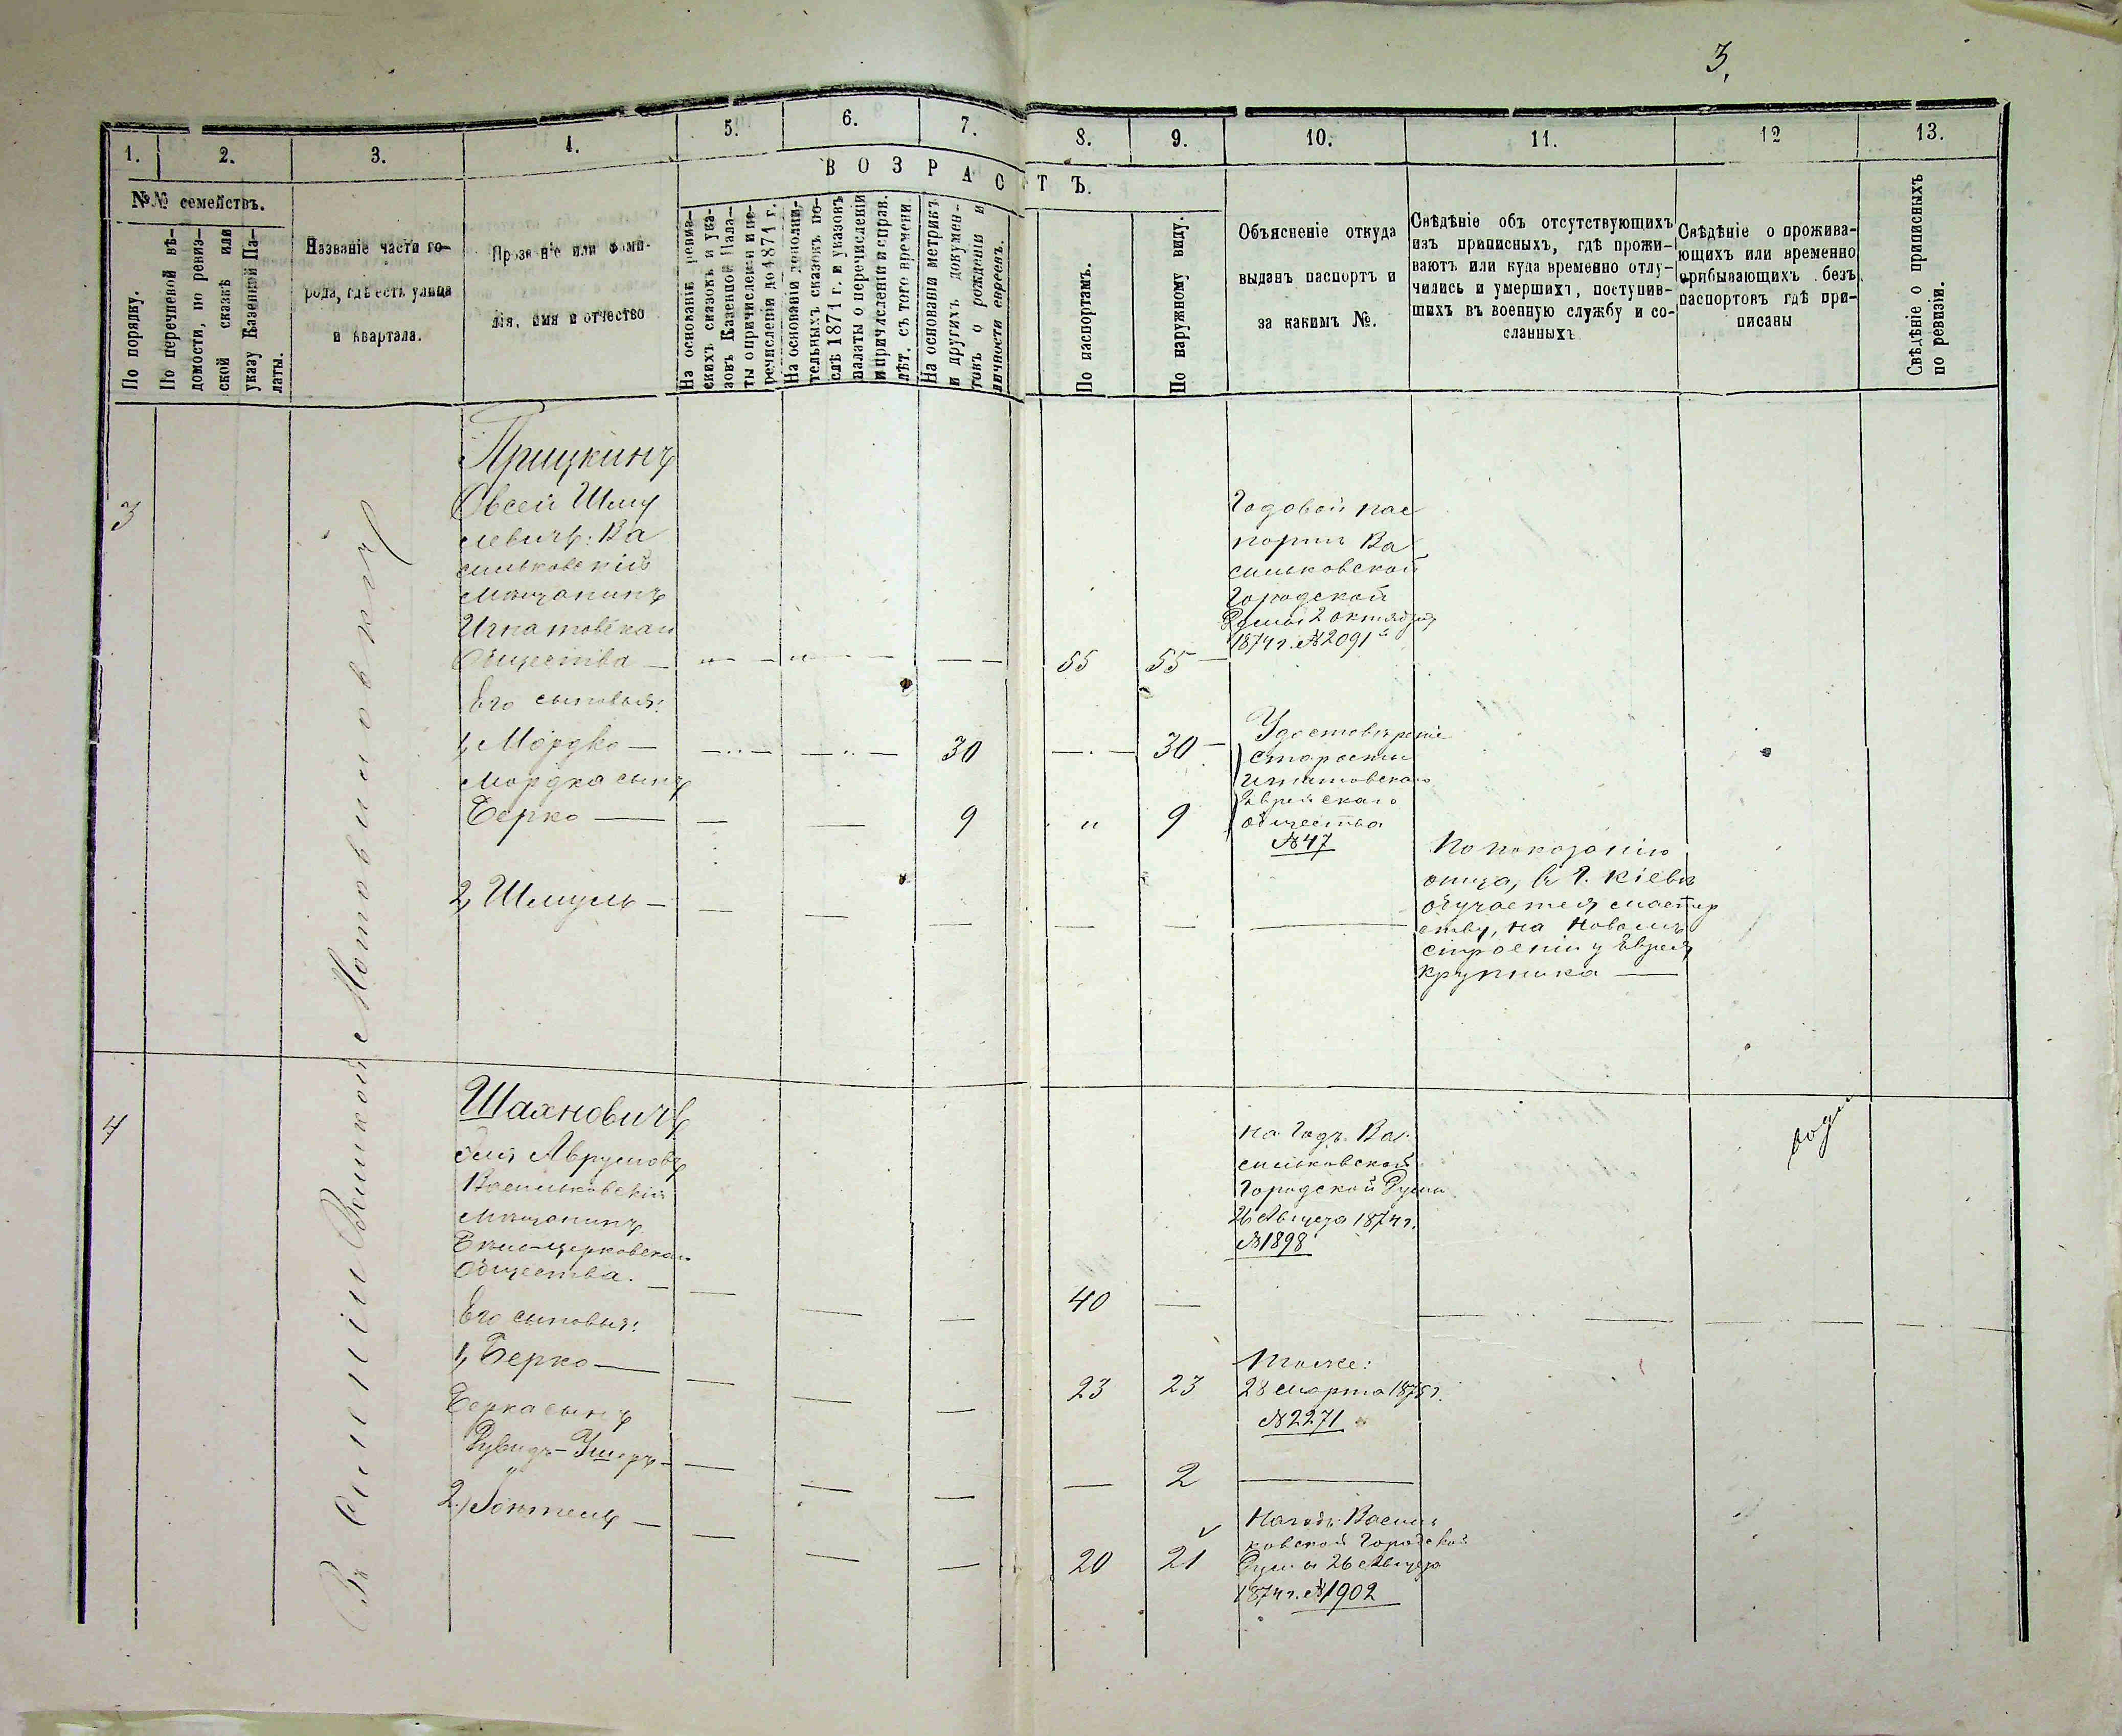 3,
1.
2.
3.
4.
5.
6.
7.
8.
9.
10.
11.
12
13.
ВОЗРАСТЪ.
№№ семействъ.
По порядку.
По перечневой вѣ-
домости, по ревиз-
ской сказкѣ или
указу Казенной Па-
латы.
Названіе части го-
рода, гдѣ есть улица
и квартала.
Прозваніе или фами-
лія, имя и отчество
На основаніи ревиз-
скихъ сказокъ и ука-
зовъ Казенной Пала-
ты о причисленіи и пе-
речисленіи до 1871 г.
На основаніи дополни-
тельныхъ сказокъ по-
слѣ 1871 г. и указовъ
палаты о перечисленіи
и причисленіи и справ.
лѣт. съ того времени.
На основаніи метрикъ
и другихъ докумен-
товъ о рожденіи и
личности евреевъ.
По паспортамъ.
По наружному виду.
Объясненіе откуда
выданъ паспортъ и
за какимъ №.
Свѣдѣніе объ отсутствующихъ
изъ приписныхъ, гдѣ прожи-
ваютъ или куда временно отлу-
чились и умершихъ, поступив-
шихъ въ военную службу и со-
сланныхъ
Свѣдѣніе о прожива-
ющихъ или временно
прибывающихъ безъ
паспортовъ гдѣ при-
писаны
Свѣдѣніе о приписныхъ
по ревизіи.
Въ селеніи Мотовиловкѣ
3
Прицкинъ
Овсей Шму
левичъ: Ва
сильковскій
мѣщанинъ
Игнатовскаго
Общества — 55 55 —
Годовой пас
портъ Ва
сильковской
Городской
Думы 2 октября
1874 г. № 2091
Его сыновья:
1, Мордко — 30 — 30 —
Мордка сынъ
Берко — 9 " 9
Удостовѣреніе
старосты
Игнатовскаго
Еврейскаго
общества
№ 47
2, Шмуль —
По показанію
отца, въ г. Кіевѣ
обучается мастер
ству, на Новомъ
строеніи у Еврея
Крупника —
4
Шахновичъ
Аврумовъ
Васильковскій
мѣщанинъ
Бѣло-Церковскаго
Общества. — 40 —
на годъ. Ва
сильковской
Городской Думы
26 Августа 1874 г.
№ 1898
Его сыновья:
1, Берко — 23 23
Тоже:
28 марта 1875 г.
№ 2271
Берка сынъ
Дувидъ-Ушеръ — 2
2, — 20 21
На годъ: Василь
ковской Городской
Думы 26 Августа
1874 г. № 1902